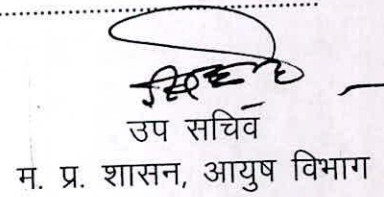 उप सचिव
म. प्र. शासन, आयुष विभाग